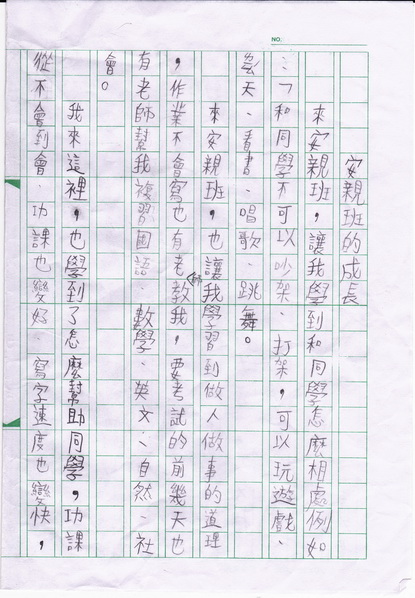 NO.
安親班的成長
來安親班，讓我學到和同學怎麼相處例如
：「和同學不可以吵架、打架，可以玩遊戲、
聊天、看書、唱歌、跳舞。
來安親班，也讓我學習到做人做事的道理
，作業不會寫也有老師教我，要考試的前幾天也
有老師幫我複習國語、數學、英文、自然、社
會。
我來這裡，也學到了怎麼幫助同學，功課
從不會到會，功課也變好、寫字速度也變快，